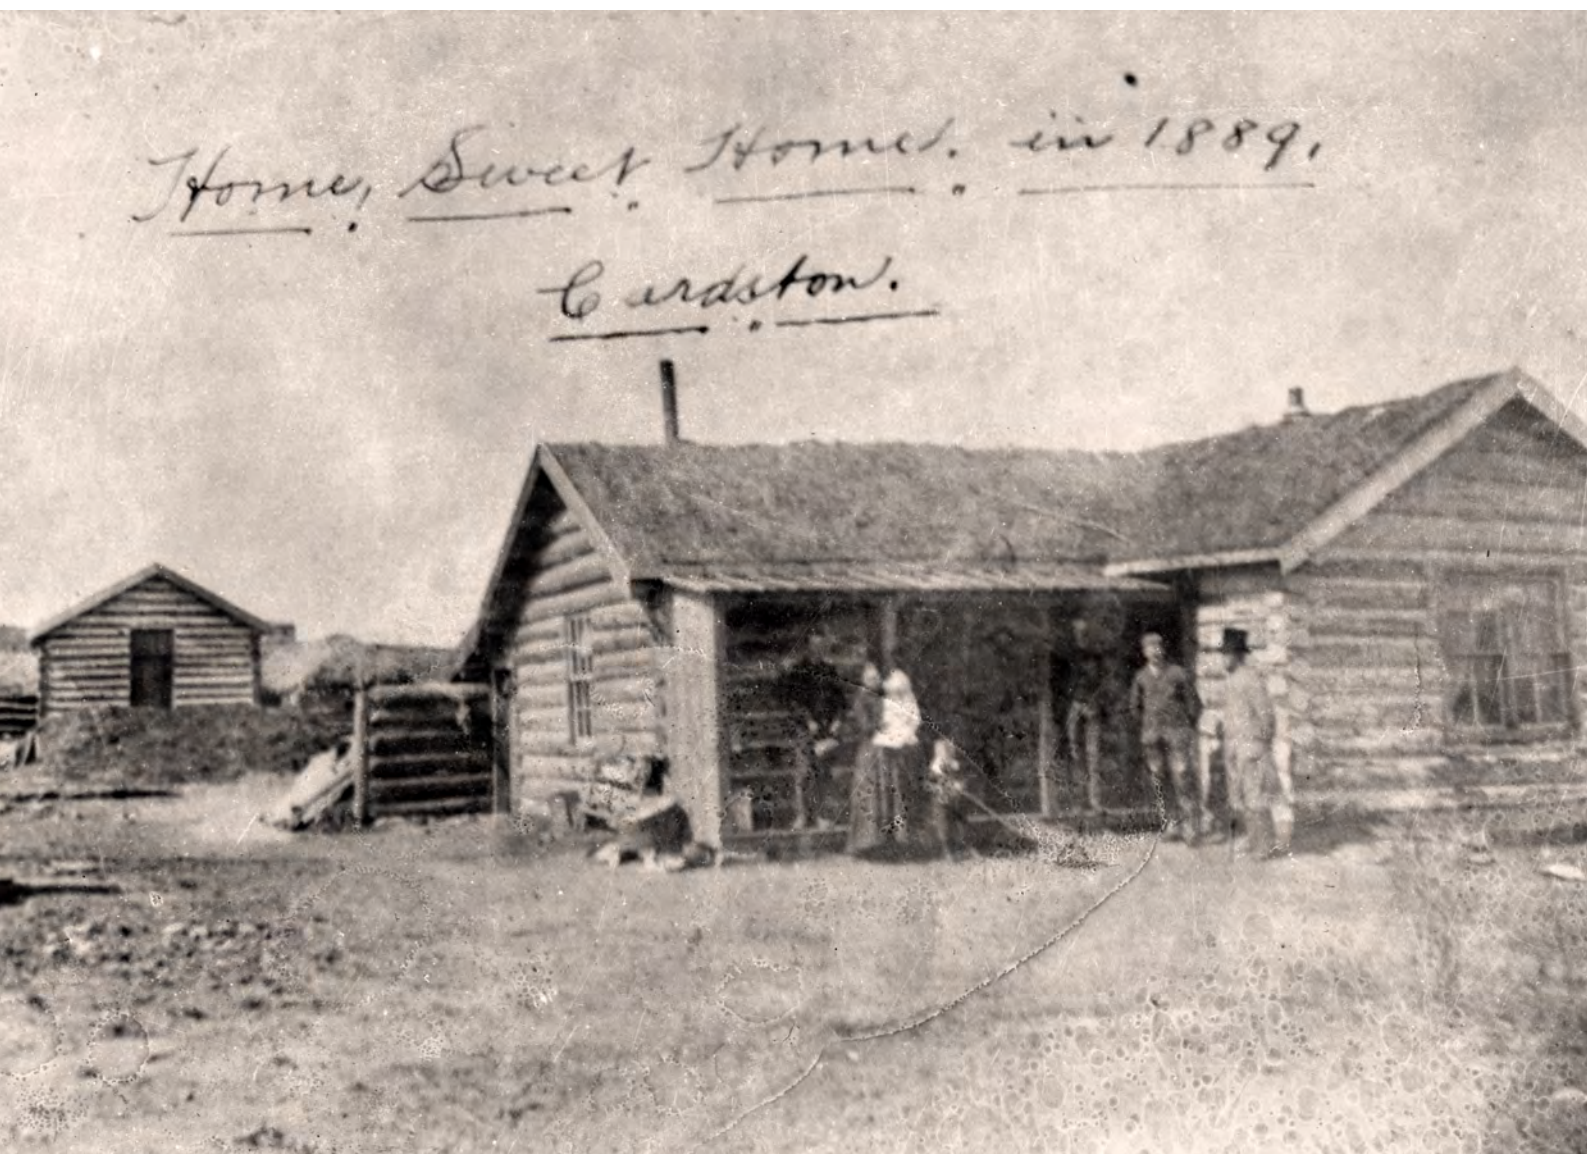 Home, Sweet Home. in 1889.
Cardston.